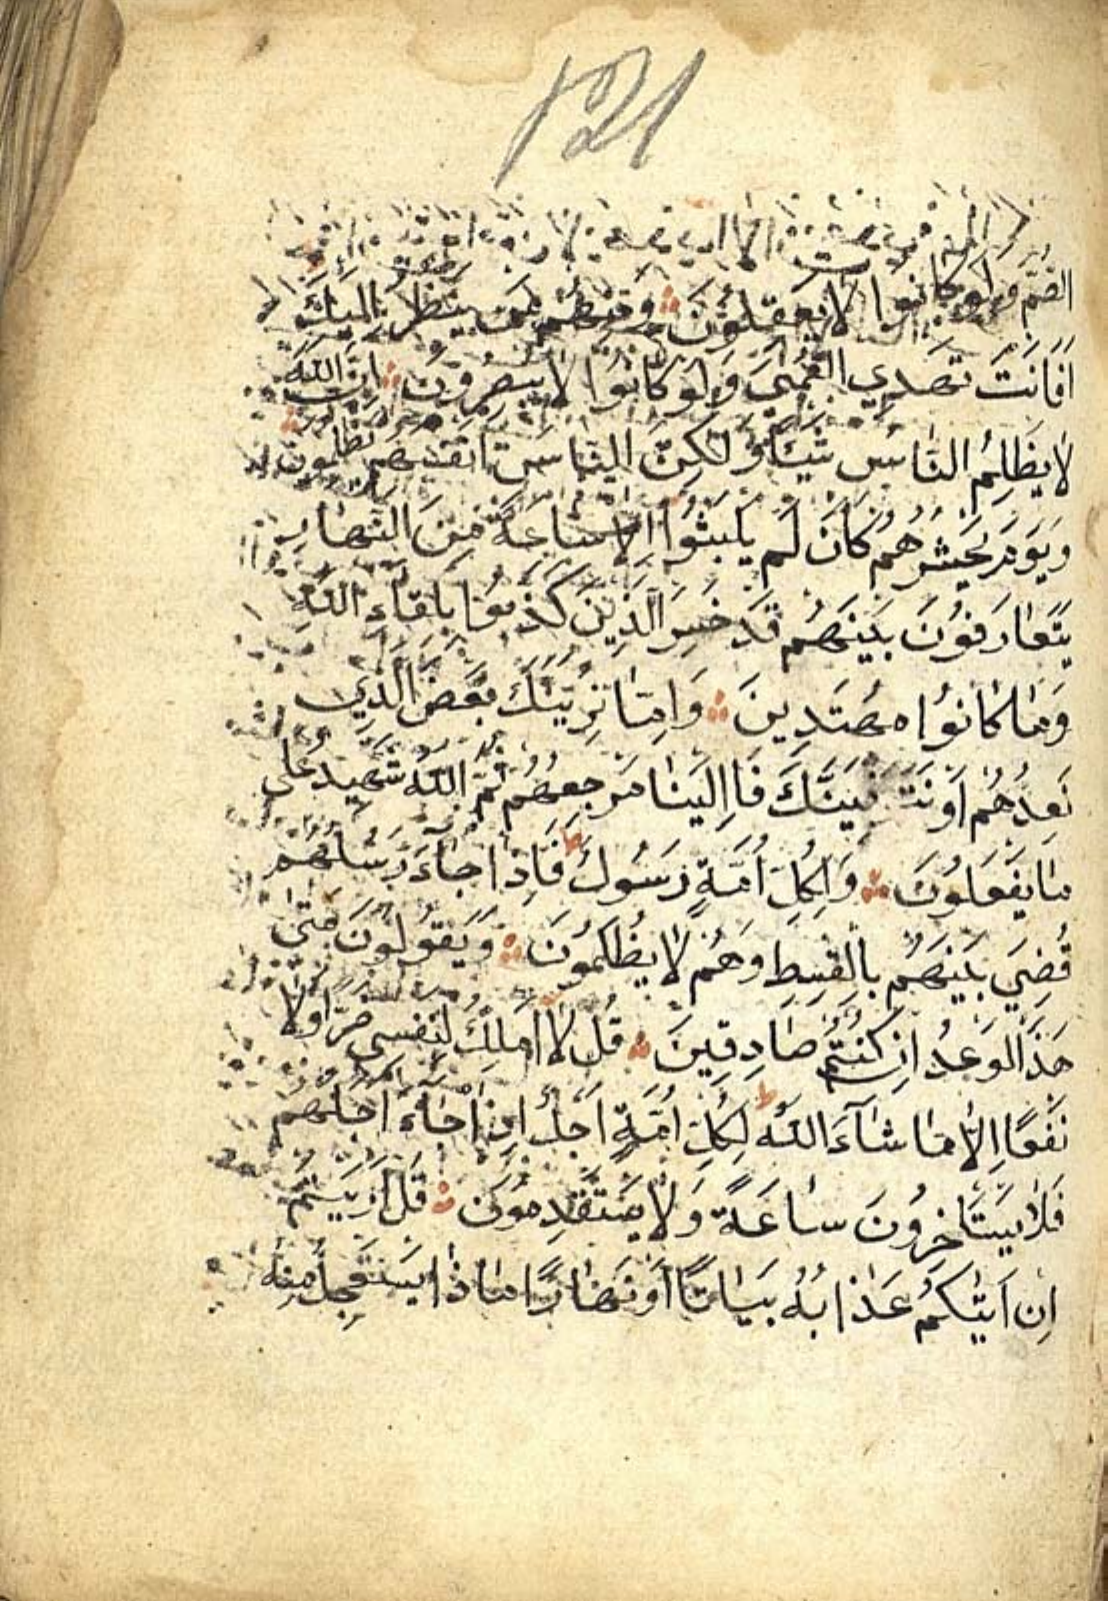 121
الصُّمَّ وَلَوْ كَانُوا لَا يَعْقِلُونَ وَمِنْهُمْ مَنْ يَنْظُرُ اِلَيْكَ
اَفَاَنْتَ تَهْدِي الْعُمْيَ وَلَوْ كَانُوا لَا يُبْصِرُونَ اِنَّ اللّٰهَ
لَا يَظْلِمُ النَّاسَ شَيْئًا وَلٰكِنَّ النَّاسَ اَنْفُسَهُمْ يَظْلِمُونَ
وَيَوْمَ يَحْشُرُهُمْ كَاَنْ لَمْ يَلْبَثُوا اِلَّا سَاعَةً مِنَ النَّهَارِ
يَتَعَارَفُونَ بَيْنَهُمْ قَدْ خَسِرَ الَّذِينَ كَذَّبُوا بِلِقَاءِ اللّٰهِ
وَمَا كَانُوا مُهْتَدِينَ وَاِمَّا نُرِيَنَّكَ بَعْضَ الَّذِي
نَعِدُهُمْ اَوْ نَتَوَفَّيَنَّكَ فَاِلَيْنَا مَرْجِعُهُمْ ثُمَّ اللّٰهُ شَهِيدٌ عَلٰى
مَا يَفْعَلُونَ وَلِكُلِّ اُمَّةٍ رَسُولٌ ط فَاِذَا جَاءَ رَسُلُهُمْ
قُضِيَ بَيْنَهُمْ بِالْقِسْطِ وَهُمْ لَا يُظْلَمُونَ وَيَقُولُونَ مَتٰى
هٰذَا الْوَعْدُ اِنْ كُنْتُمْ صَادِقِينَ قُلْ لَا اَمْلِكُ لِنَفْسِي ضَرًّا وَلَا
نَفْعًا اِلَّا مَا شَاءَ اللّٰهُ ط لِكُلِّ اُمَّةٍ اَجَلٌ اِذَا جَاءَ اَجَلُهُمْ
فَلَا يَسْتَاْخِرُونَ سَاعَةً وَلَا يَسْتَقْدِمُونَ قُلْ اَرَيْتُمْ
اِنْ اَتٰيكُمْ عَذَابُهُ بَيَاتًا اَوْ نَهَارًا مَاذَا يَسْتَعْجِلُ مِنْهُ